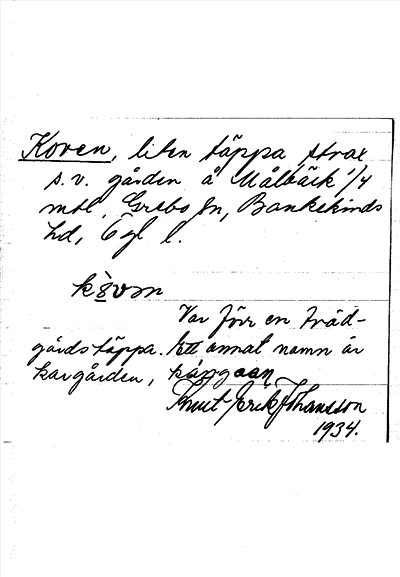 Koven, liten täppa strax
s.v. gården å Målbäck 1/4
mtl, Grebo sn, Bankekinds
hd, Ög l.
kòvm
Var förr en träd-
gårdstäppa. Ett annat namn är
kargården,
Knut-Erik Johansson
1934.